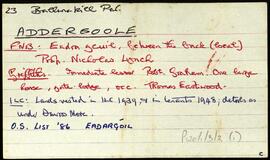 23 Ballinakill Par.
ADDERGOOLE
FNB: Eadar gcuil, between the back (local)
Prop. Nicholas Lynch
Griffiths: Immediate lessor Robt. Graham. One large
house, gate lodge, occ. Thomas Eastwood.
ILC: Lands vested in the 1939, in tenants 1948; details as
under
O.S. LIST '86 EADARGÓIL
P120/1/3/2 (i)
C